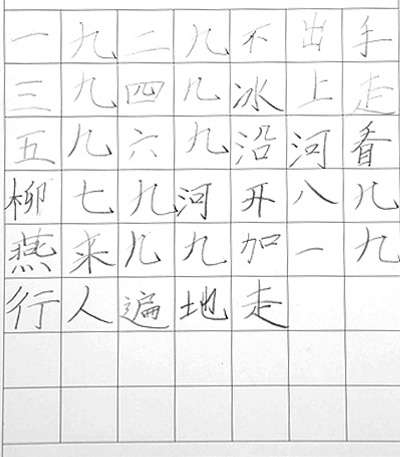 一九二九不出手
三九四九冰上走
五九六九沿河看
柳七九河开八九
燕来九九加一九
行人遍地走